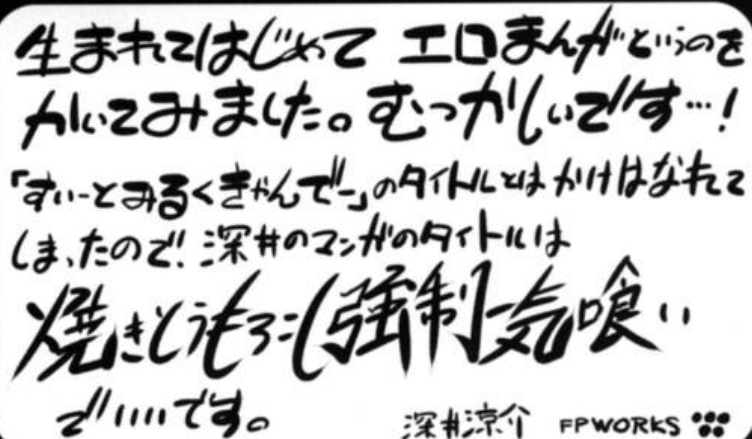 生まれてはじめて エロまんがというのを
かいてみました。むつかしいです…!
「すいーとみるくきゃんでー」のタイトルとはかけはなれて
しまったので!深井のマンガのタイトルは
焼きとうもろこし強制一気喰い
でいいです。
深井涼介 FPWORKS